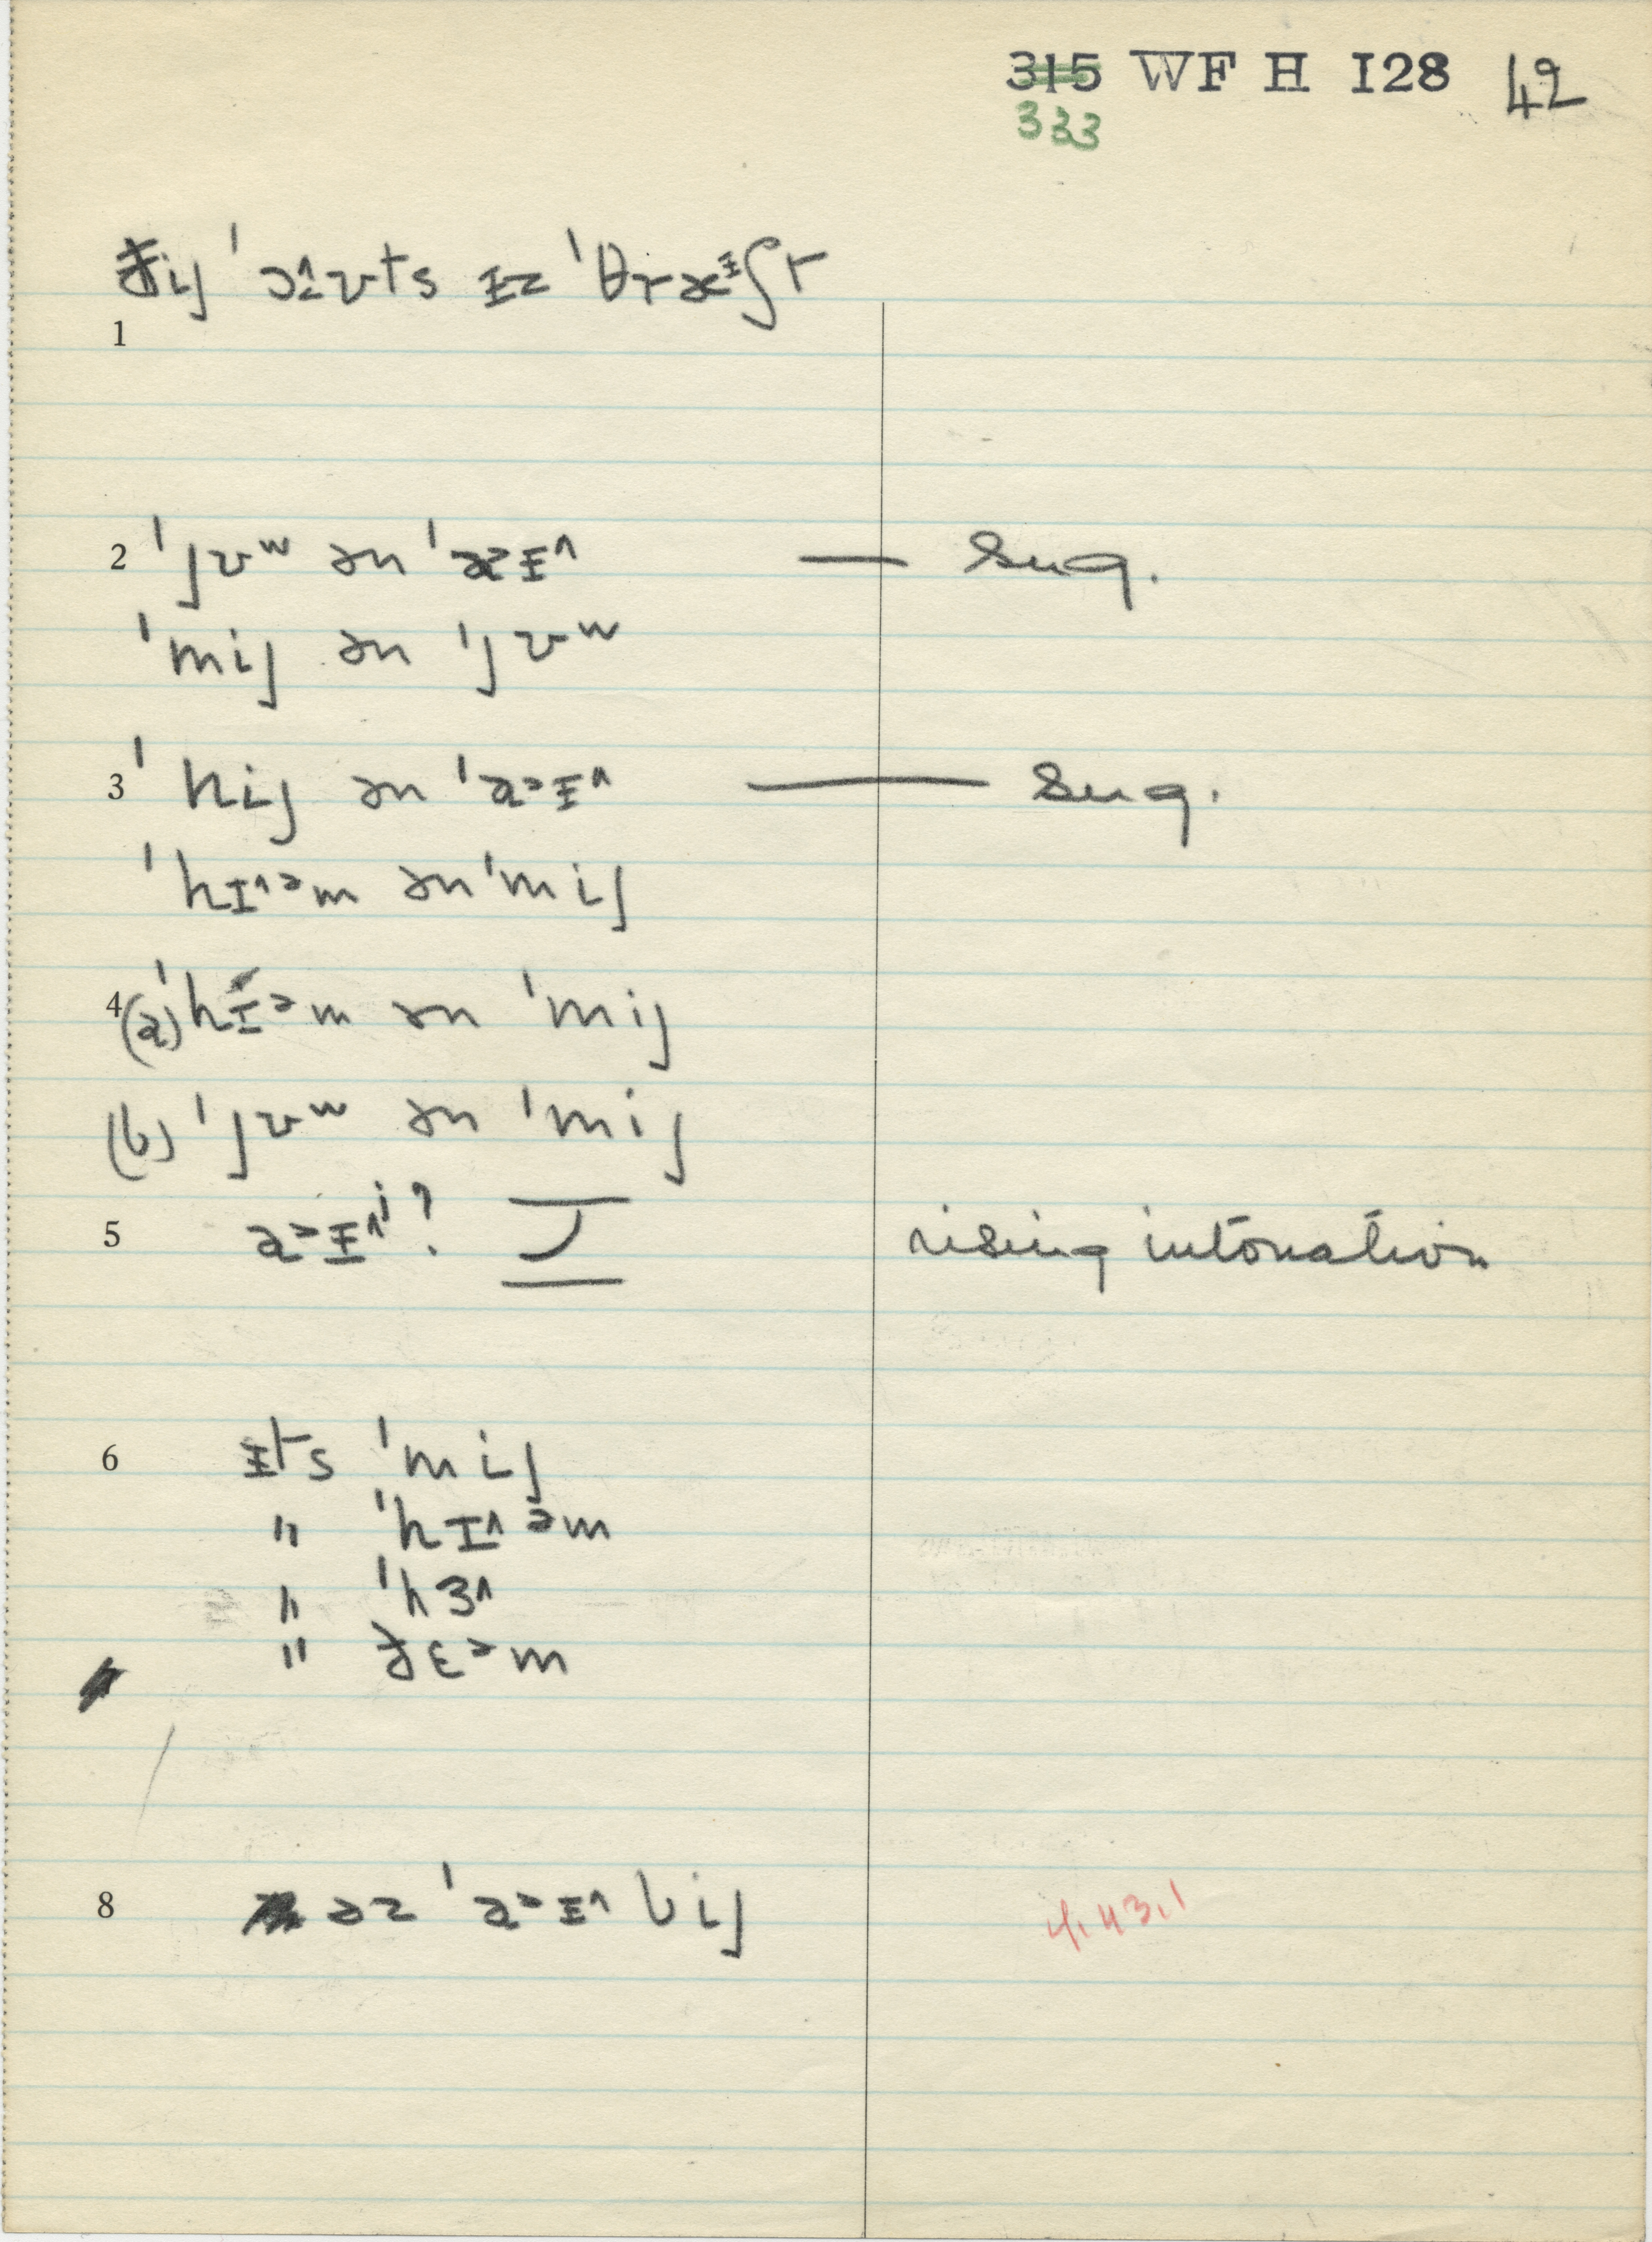 315 WF H I28 42
333
ðij ˈɔ^ʊts ɪz ˈθræᵻʃt
1
2 ˈjʊʷ ən ˈaᵊɪ^ — sug.
ˈmij ən ˈjʊʷ
3 ˈhij ən ˈaᵊɪ^ — sug.
ˈhɪ^ᵊm ən ˈmij
4 (a) ˈhɪᵊm ən ˈmij
(b) ˈjʊʷ ən ˈmij
5 aᵊɪ^ʲ? rising intonation
6 ɪts ˈmij
" ˈhɪ^ᵊm
" ˈhɜ^
" ðɛᵊm
8 əz ˈaᵊɪ^ bij